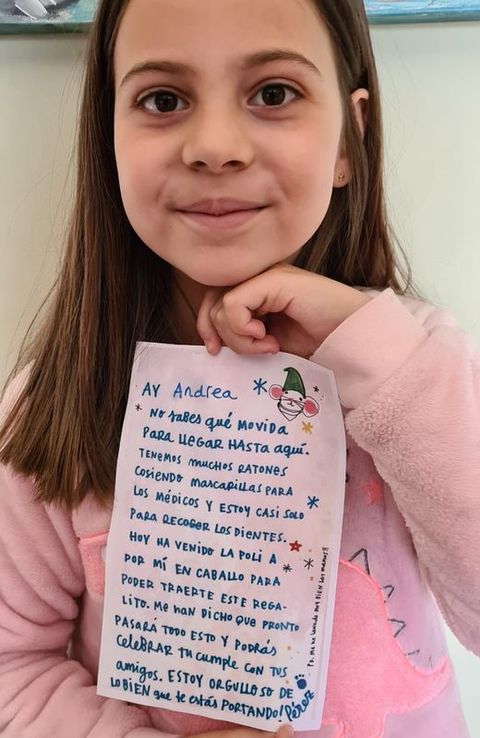 AY Andrea
No sabes qué movida
para llegar hasta aquí.
Tenemos muchos ratones
cosiendo mascarillas para
los médicos y estoy casi solo
para recoger los dientes.
Hoy ha venido la poli a
por mí en caballo para
poder traerte este rega-
lito. Me han dicho que pronto
pasará todo esto y podrás
celebrar tu cumple con tus
amigos. Estoy orgulloso de
lo bien que te estás portando!
Pérez
PD. Me he lavado muy bien las manos!!